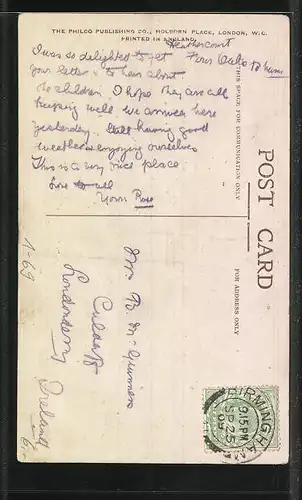 THE PHILCO PUBLISHING CO., HOLBORN PLACE, LONDON, W.C.
PRINTED IN ENGLAND.
Heathercourt
Four Oaks
I was so delighted to get
your letter & to hear about
the children I hope they are all
keeping well we arrived here
yesterday. having good
weather & enjoying ourselves
This is a very nice place
love to all
Yours
THIS SPACE FOR COMMUNICATION ONLY
POST CARD
FOR ADDRESS ONLY
Mrs B.
Culdaff
Londonderry
Ireland
1-69
BIRMINGHAM
9.15 PM
SP 25
09